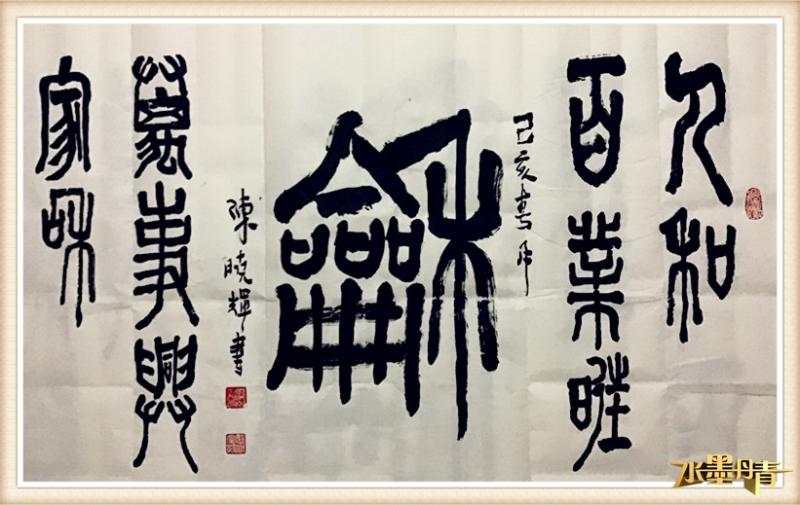 人和
百業旺
己亥春月
龢
陳曉輝書
家和
萬事興
水墨丹青